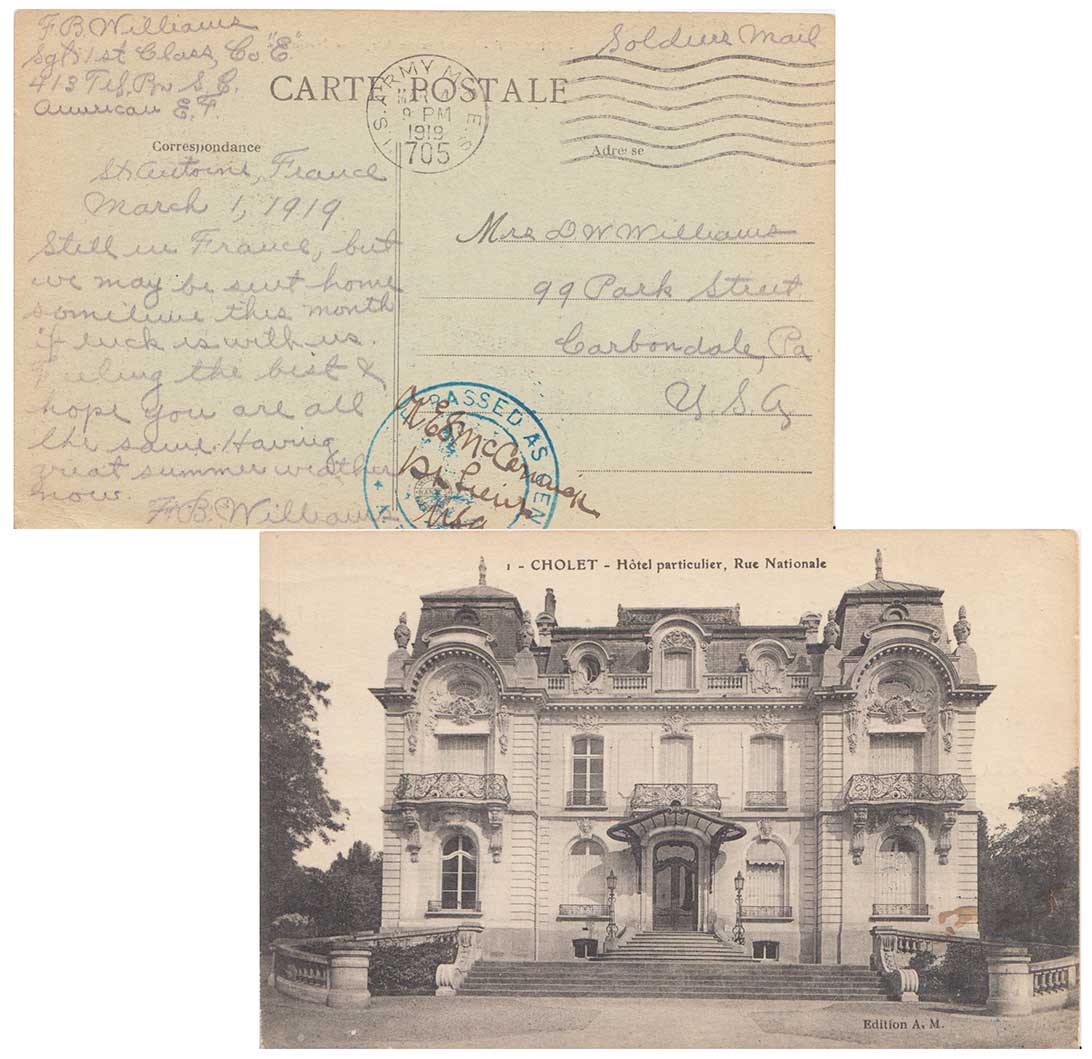 F.B. Williams
Sgt 1st Class, Co "E"
413 Tel. Bn S.C.
American E.F.
Soldiers Mail
CARTE POSTALE
U.S. ARMY M.P.E.S.
9 PM
1919
705
Correspondance
Adresse
St Antoine, France
March 1, 1919
Still in France, but
we may be sent home
sometime this month
if luck is with us.
Feeling the best &
hope you are all
the same. Having
great summer weather
now.
F.B. Williams
Mrs D W Williams
99 Park Street
Carbondale, Pa.
U.S.A
PASSED AS CEN
1 - CHOLET - Hôtel particulier, Rue Nationale
Edition A. M.